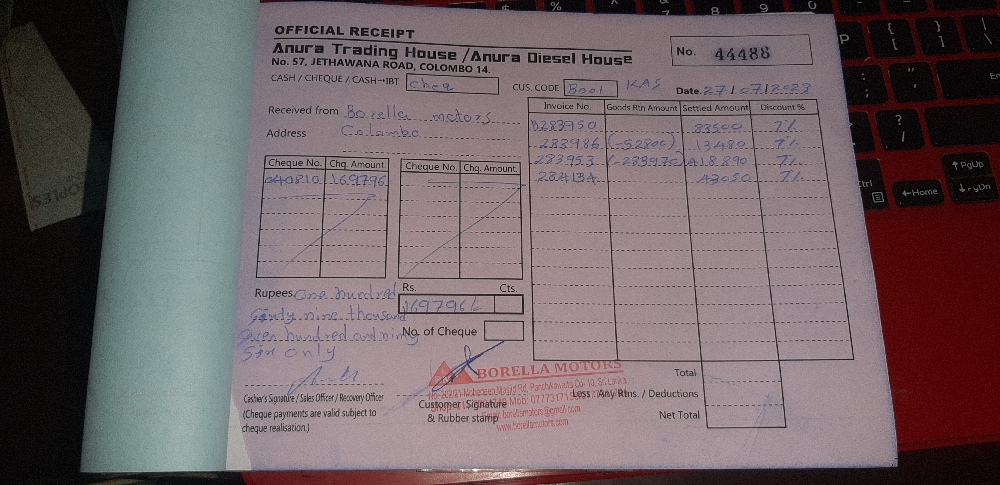 OFFICIAL RECEIPT
Anura Trading House / Anura Diesel House
No. 57, JETHAWANA ROAD, COLOMBO 14.
No. 44488
CASH / CHEQUE / CASH→IBT cheq
CUS. CODE Boo1 KAS
Date. 27/07/2023
Received from Borella motors
Address Colombo
Invoice No. Goods Rtn Amount Settled Amount Discount %
283950 83500 7%
283986 (-52806) 13480 7%
283953 7%
284134 43050 7%
Cheque No. Chq. Amount
040810 169796
Cheque No. Chq. Amount
Rupees One hundred
Sixty nine thousand
Seven hundred and ninty
Six only
Rs. Cts.
169796
No. of Cheque
Cashier's Signature / Sales Officer / Recovery Officer
(Cheque payments are valid subject to
cheque realisation.)
BORELLA MOTORS
Customer Signature
& Rubber stamp
www.borellamotors.com
Total
Less : Any Rtns. / Deductions
Net Total
P
PgUp
Home
PgDn